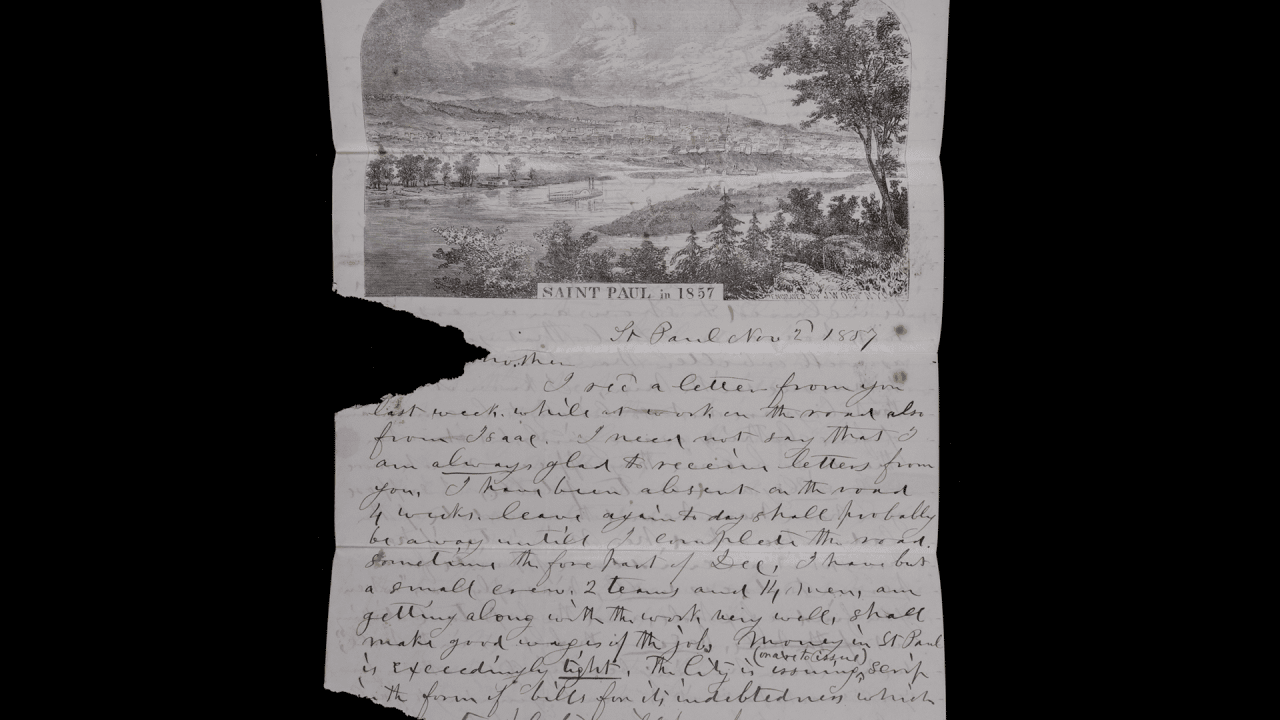 SAINT PAUL in 1857
ENGRAVED BY J.W. ORR N.Y.
St Paul Nov 2d 1857
I recd a letter from you
last week. while at work on the road also
from Isaac. I need not say that I
am always glad to receive letters from
you. I have been absent on the road
4 weeks. leave again to day shall probably
be away untill I complete the road.
sometime the fore part of Dec, I have but
a small crew. 2 teams and 14 men, am
getting along with the work very well, shall
make good wages if the job. Money in St Paul
(or are to issue)
is exceedingly tight. The City is issuing scrip
in the form of bills for its indebtedness which